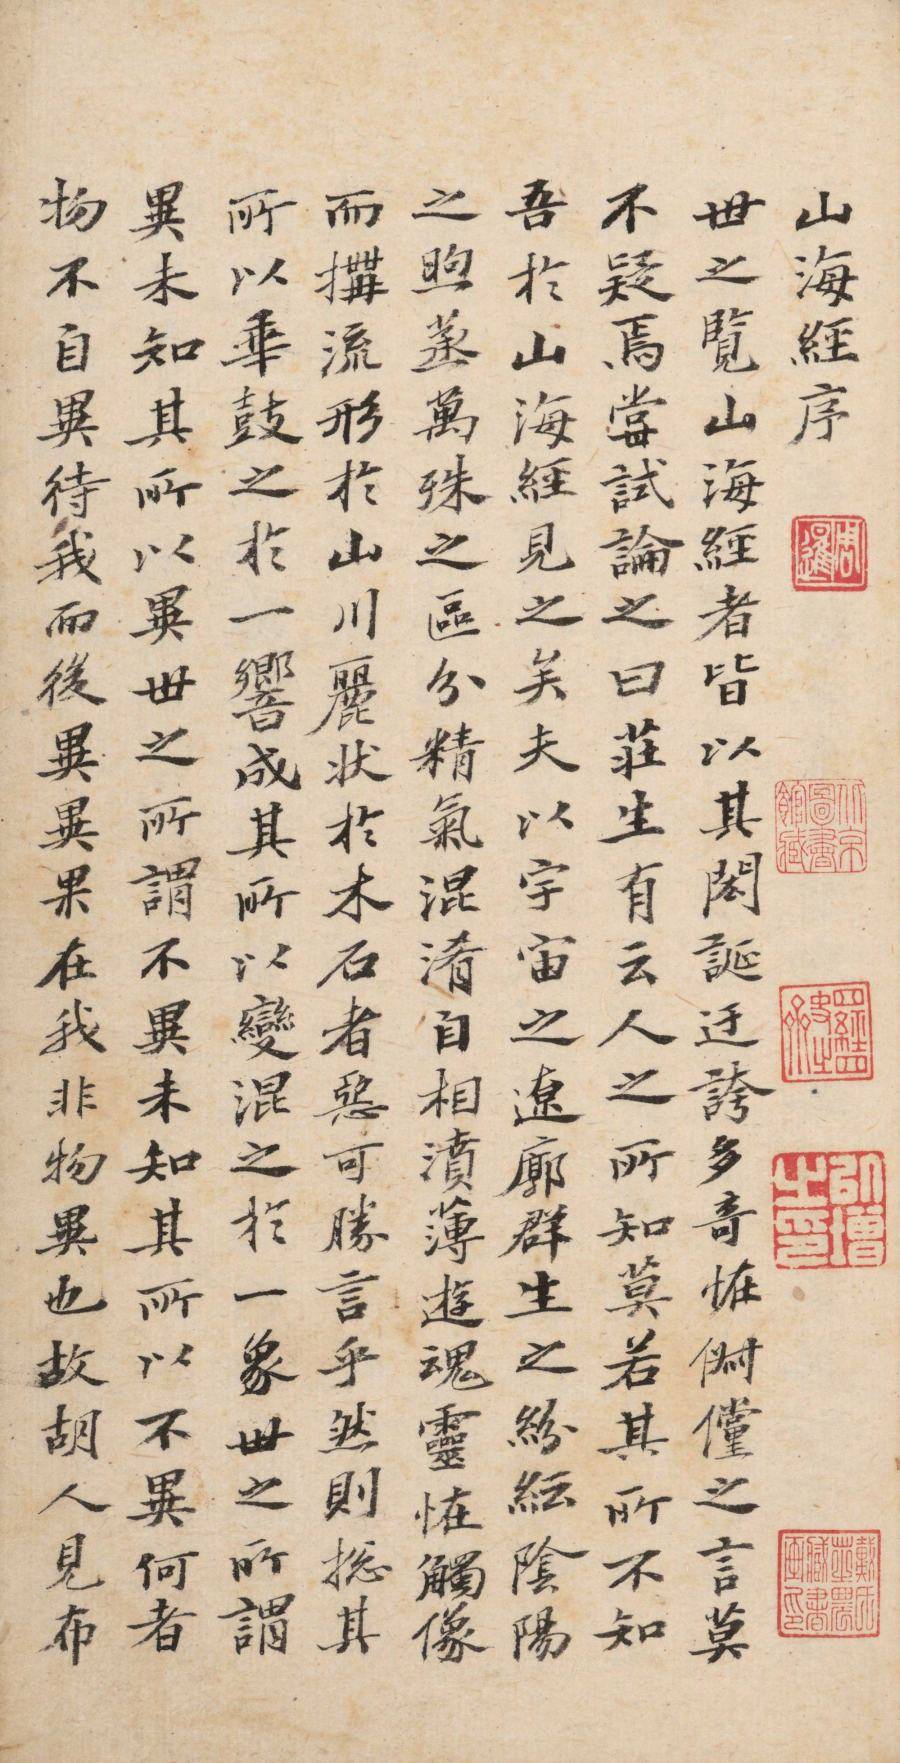 山海經序
周暹
北京圖書館藏
四經四史之齋
以增之印
戴氏芝農藏書畫印
世之覽山海經者皆以其閎誕迂誇多奇恠俶儻之言莫
不疑焉嘗試論之曰莊生有云人之所知莫若其所不知
吾於山海經見之矣夫以宇宙之遼廓群生之紛紜陰陽
之煦蒸萬殊之區分精氣混淆自相濆薄遊魂靈恠觸像
而搆流形於山川麗狀於木石者惡可勝言乎然則捴其
所以乖鼓之於一響成其所以變混之於一象世之所謂
異未知其所以異世之所謂不異未知其所以不異何者
物不自異待我而後異異果在我非物異也故胡人見布